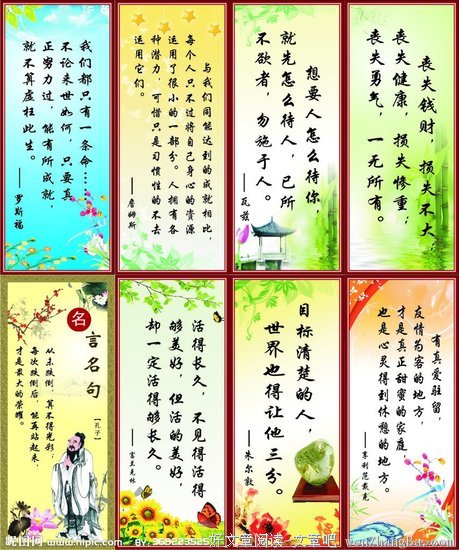 我们都只有一条命……
不论来世如何，只要真
正努力过，能有所成就，
就不算虚枉此生。
——罗斯福
与我们同能达到的成就相比，
每个人只不过将自己身心的资源
运用了很小的一部分。人拥有各
种潜力，可惜只是习惯性的不去
运用它们。
——詹姆斯
想要人怎么待你，
就先怎么待人，已所
不欲者，勿施于人。
——瓦兹
丧失钱财，损失不大；
丧失健康，损失惨重；
丧失勇气，一无所有。
名
言名句
[孔子]
从未跌倒，算不得光彩；
每次跌倒后，能再站起来，
才是最大的荣耀。
活得长久，不见得活得
够美好，但活的美好，
却一定活得够长久。
——富兰克林
目标清楚的人，
世界也得让他三分。
——朱尔敦
有真爱驻留，
友情为客的地方，
才是真正甜蜜的家庭
也是心灵得到休憩的地方。
——亨利范戴克
昵图网 www.nipic.com
好文章阅读-文章吧